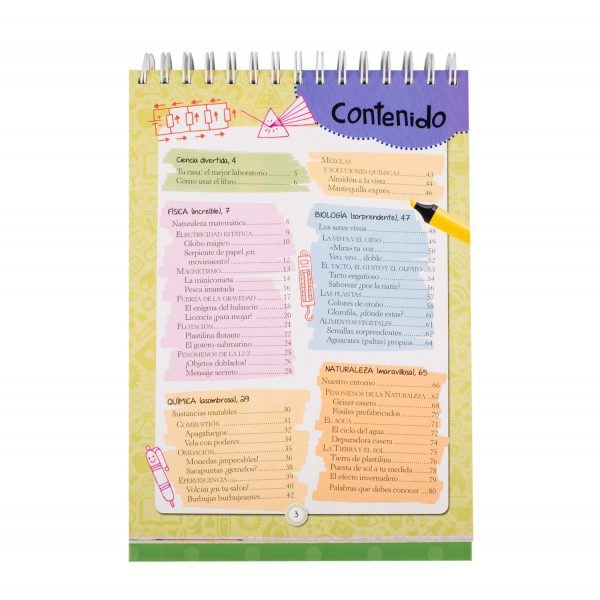 Contenido
Ciencia divertida, 4
Tu casa: el mejor laboratorio ............ 5
Cómo usar el libro ............ 6
FÍSICA (increíble), 7
Naturaleza matemática ............ 8
ELECTRICIDAD ESTÁTICA ............ 9
Globo mágico ............ 10
Serpiente de papel ¡en
movimiento! ............ 12
MAGNETISMO ............ 13
La minicometa ............ 15
Pesca imantada ............ 16
FUERZA DE LA GRAVEDAD ............ 17
El enigma del balancín ............ 18
Licencia ¡para mojar! ............ 20
FLOTACIÓN ............ 21
Plastilina flotante ............ 22
El gotero-submarino ............ 24
FENÓMENOS DE LA LUZ ............ 25
¡Objetos doblados! ............ 26
Mensaje secreto ............ 28
QUÍMICA (asombrosa), 29
Sustancias mutables ............ 30
COMBUSTIÓN ............ 31
Apagafuegos ............ 32
Vela con poderes ............ 34
OXIDACIÓN ............ 35
Monedas ¡impecables! ............ 36
Sacapuntas ¿gemelos? ............ 38
EFERVESCENCIA ............ 39
Volcán ¡en tu salón! ............ 40
Burbujas burbujeantes ............ 42
MEZCLAS
Y SOLUCIONES QUÍMICAS ............ 43
Almidón a la vista ............ 44
Mantequilla exprés ............ 46
BIOLOGÍA (sorprendente), 47
Los seres vivos ............ 48
LA VISTA Y EL OÍDO ............ 49
«Mira» tu voz ............ 50
Veo, veo... doble ............ 52
EL TACTO, EL GUSTO Y EL OLFATO ............ 53
Tacto engañoso ............ 54
Saborear ¿por la nariz? ............ 56
LAS PLANTAS ............ 57
Colores de otoño ............ 58
Clorofila, ¿dónde estás? ............ 60
ALIMENTOS VEGETALES ............ 61
Semillas sorprendentes ............ 62
Aguacates (paltas) propios ............ 64
NATURALEZA (maravillosa), 65
Nuestro entorno ............ 66
FENÓMENOS DE LA NATURALEZA ............ 67
Géiser casero ............ 68
Fósiles prefabricados ............ 70
EL AGUA ............ 71
El ciclo del agua ............ 72
Depuradora casera ............ 74
LA TIERRA Y EL SOL ............ 75
Tierra de plastilina ............ 76
Puesta de sol a tu medida ............ 78
El efecto invernadero ............ 79
Palabras que debes conocer .... 80
3